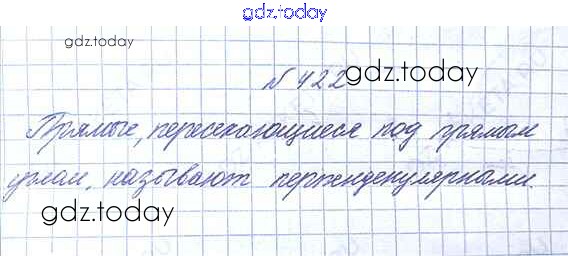 gdz.today
gdz.today
№ 422 gdz.today
Прямые, пересекающиеся под прямым
углом, называют перпендикулярными.
gdz.today